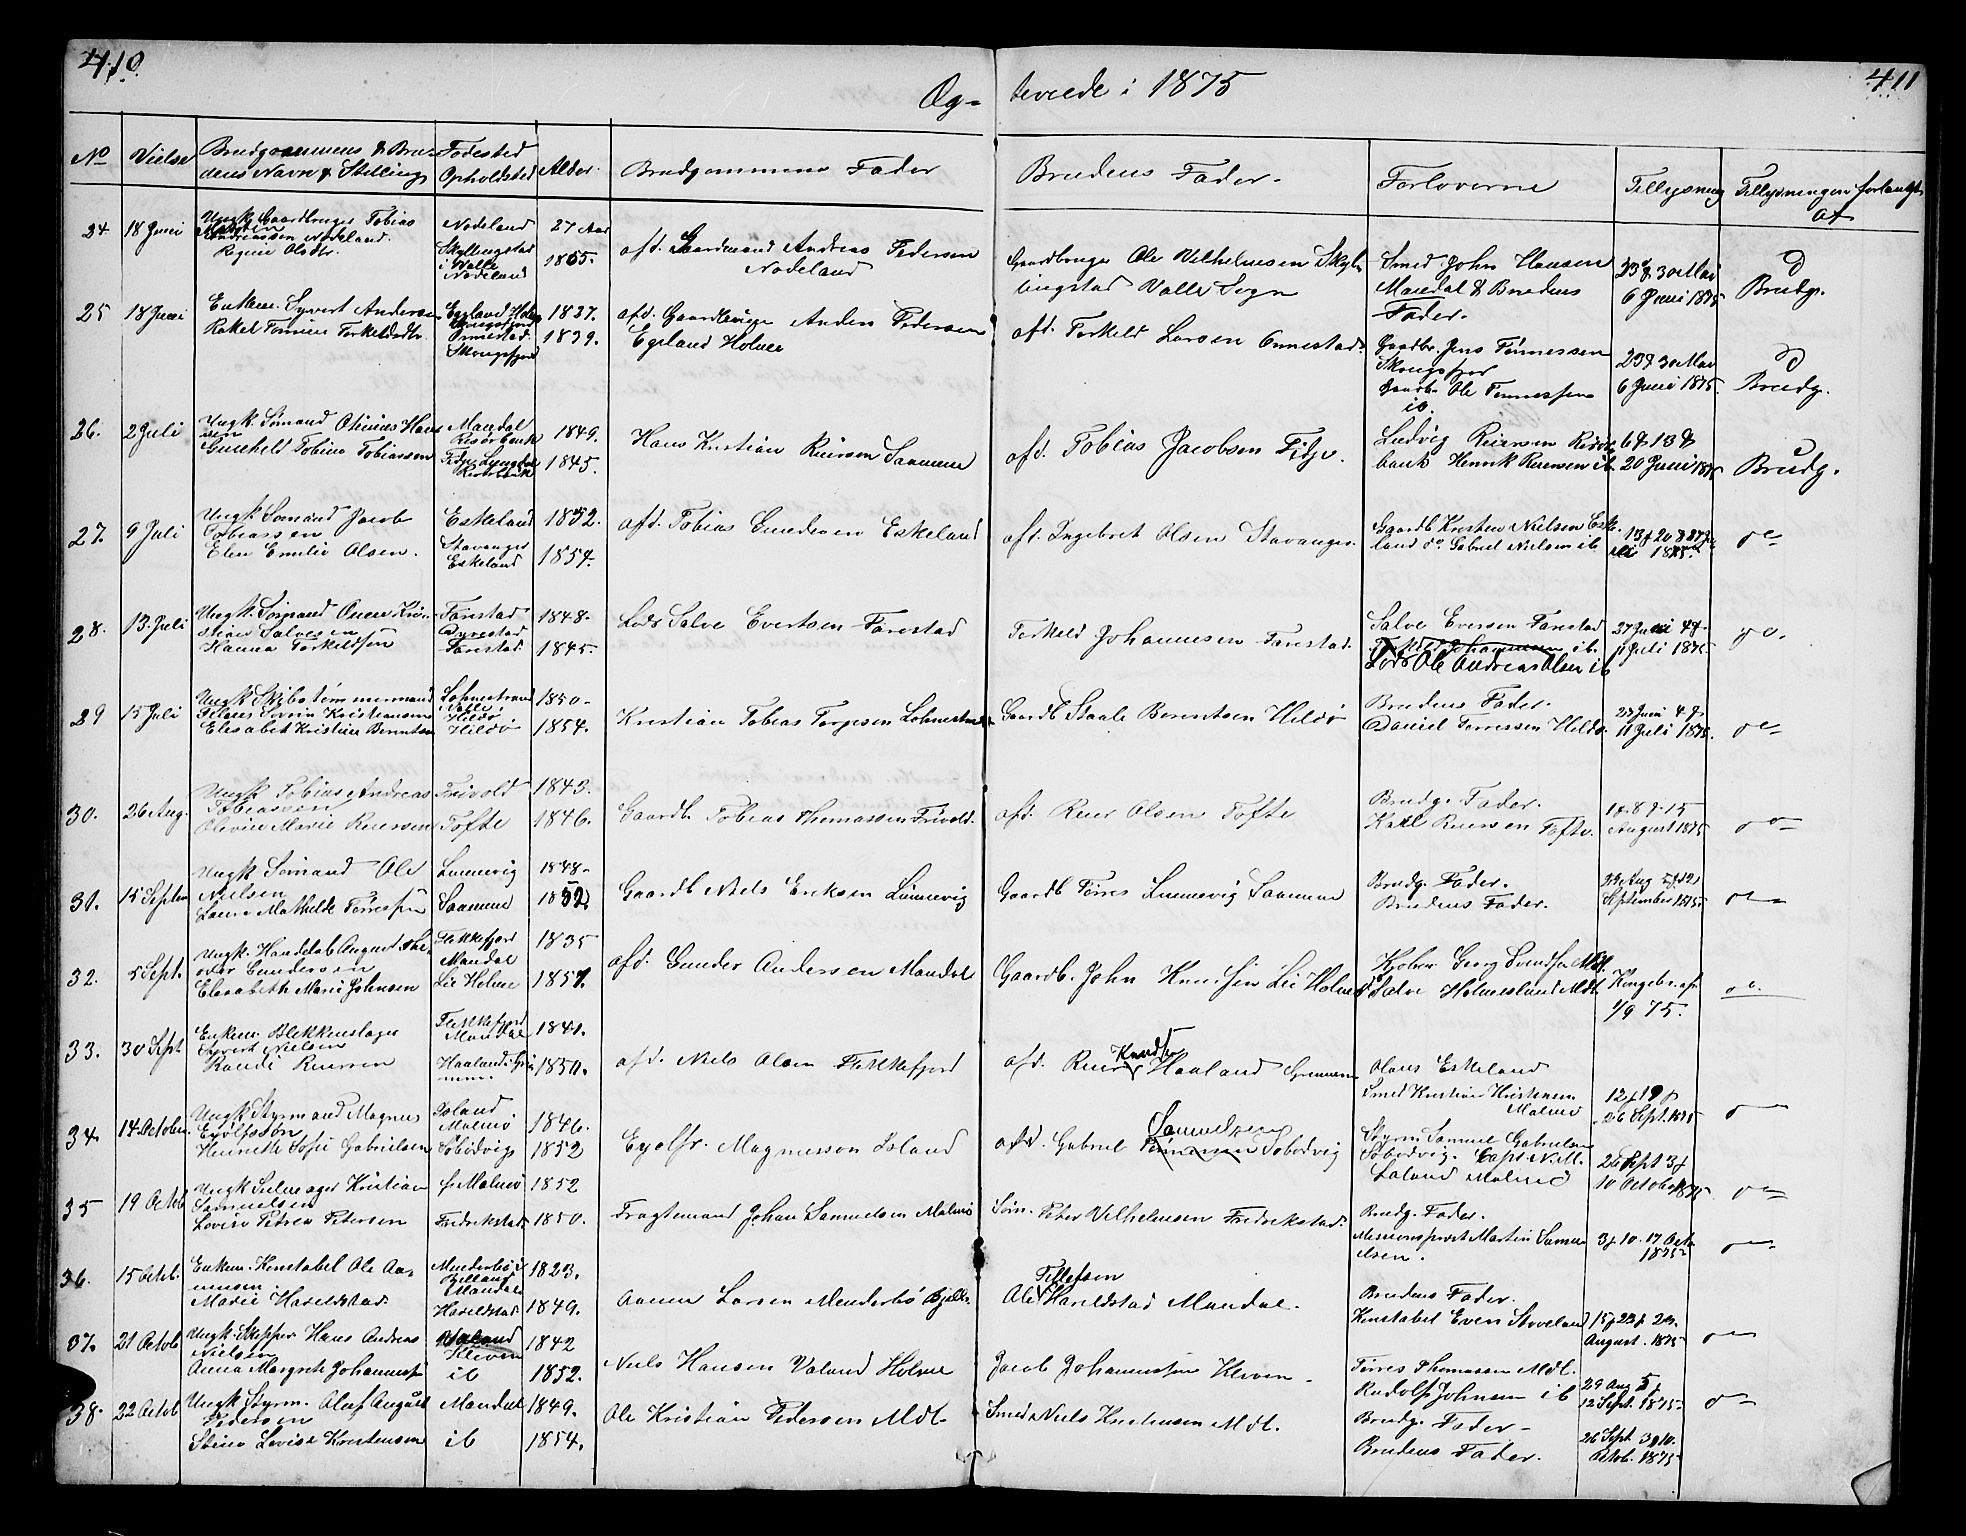 410.
411
Æg-
teviede i 1875
No
Vielse
Brudgommens & Bru-
dens Navn & Stilling
Fødested
Opholdsted
Alder.
Brudgommens Fader
Brudens Fader.
Forloverne
Tillysning
Tillysningen forlangt
af
24. 18 Juni
Ungk. Gaardbruger Tobias
Andreassen Nodeland.
Regine Olsdtr.
Nodeland
Skyllingstad
i Valle
Nodeland
27 Aar
1855.
afd. Gaardmand Andreas Pedersen
Nodeland
Gaardbruger Ole Vilhelmsen Skyl-
lingstad Valle Sogn
Smed John Hansen
Mandal & Brudens
Fader.
23 & 30 Mai
6 Juni 1875
Brudg.
25 18 Juni
Enkem. Syvert Andersen
Rakel Tomine Torkeldsdtr.
Egeland Holme
Skougsfjord
1837.
1839.
afd. Gaardbruger Anders Pedersen
Egeland Holme
afd. Torkeld Larsen Omestad.
Gaardbr. Jens Tønnessen
Skougsfjor
Gaardb. Ole Tønnessen
ib.
23 & 30 Mai
6 Juni 1875.
Brudg.
26. 2 Juli
Ungk. Sømand Otinius Hans
sen
Gunehild Tobine Tobiassen
Mandal
Risørbank
1849.
1845.
Hans Kristian Reiersen Saanum
afd. Tobias Jacobsen Fidje.
Ludvig Reiersen Risør
bank Henrik Reiersen ib.
6 & 13 &
20 Juni 1875
Brudg.
27. 9 Juli
Ungk. Sømand Jacob
Tobiassen
Elen Emilie Olsen.
Eskeland
Stavanger
Eskeland
1852.
1854.
afd. Tobias Gundersen Eskeland
afd. Ingebret Olsen Stavanger.
Gaardb Kristen Nielsen Eske-
land do. Gabriel Nielsen ib
28. 13. Juli
Ungk. Sømand Onen Kri-
stian Salvesen
Hanna Torkildsen
Farestad
Dyrestad
Farestad
1848.
1845.
Lods Salve Evertsen Farestad
Torkeld Johannesen Farestad.
Salve Eversen Farestad
Torkeld Johannesen ib.
Lods Ole Andreas Olsen ib
27 Juni 4 &
11 Juli 1875
29 15 Juli
Ungk Skibstømmermand
Kristiansen
Elisabet Kristine Berentsen
Lohnestrand
Valle
Hildø
Hildø
1850.
1854.
Kristian Tobias Torgesen Lohnestrand
Gaardb Staale Berentsen Hildø
Brudens Fader.
Daniel Torressen Hildø.
27 Juni 4 &
11 Juli 1875.
30. 26 Aug.
Ungk Tobias Andreas
Tobiassen
Olevine Marie Reiersen
Frivold
Tofte
1843.
1846.
Gaardb. Tobias Thomassen Frivold.
afd. Reier Olsen Tofte
Brudg. Fader.
Karl Reiersen Tofte.
1 & 8 & 15
August 1875
31. 15 Septem
Ungk Sømand Ole
Nielsen
Laura Mathilde Tørresen
Lunnevig
Saanum
1848.
1852.
Gaardb Niels Eriksen Lunnevig
Gaardb Tørres Lunnevig Saanum
Brudg. Fader.
Brudens Fader.
29 Aug 5 & 12
September 1875.
32. 5 Sept.
Ungk. Handelsb August The-
odor Gundersen
Elisabeth Marie Johnsen
Flekkefjord
Mandal
Lie Holme
1835
1851.
afd. Gunder Andersen Mandal
Gaardb. John Knudsen Lie Holme
Kjøbm Georg Svendsen Mdl.
Salve Holmesland Mdl.
Kongebr. af
1/9 75.
33. 30 Sept
Enkem. Blekkenslager
Syvert Nielsen
Randi Reiersen
Flekkefjord
Mandal
Haaland i Gri-
mmen
1841.
1850.
afd. Niels Olsen Flekkefjord
afd. Reier Knudsen Haaland Grimmen
Olaus Eskeland
Smed Kristian Kristensen
Malmø
12 & 19 &
26 Sept. 1875
34. 14. October.
Ungk Styrmand Magnus
Eyolfsson
Henriette Sofie Gabrielsen
Island
Malmø
Sobodvig
1846.
1852
Eyolfr. Magnusson Island
afd. Gabriel Tønnessen Samuelsen Sobodvig
Styrm Samuel Gabrielsen
Sobodvig. Capt. N. M.
Laland Malmø
26 Sept 3 &
10 October 1875
35 19 Octob
Ungk Kristian
Samuelsen
Lovise Petrea Petersen
Malmø
Fredrikstad
1852
1850.
Fragtemand Johan Samuelsen Malmø
Søm. Peter Vilhelmsen Fredrikstad.
Brudg. Fader.
Missionsprest Martin Samu-
elsen.
3 & 10. 17 Octo
1875
36. 15 Octb.
Enkem. Konstabel Ole Aa-
nensen
Marie Haraldstad.
Menderbø i
Bjelland
Mandal
Haraldstad
1823.
1849.
Aanen Larsen Menderbø Bjell.
Ole Tellefsen Haraldstad Mandal.
Brudens Fader.
Konstabel Even Stoveland
15 & 22 & 29.
August. 1875
37. 21 Octob
Ungk. Skipper Hans Andreas
Nielsen
Anna Margrete Johannesen
Valand
Kleven
ib
1842
1852.
Niels Hansen Valand Holme
Jacob Johannesen Kleven.
Tørres Thomassen Mdl.
Rudolf Johnsen ib
29 Aug 5 &
12 Sept. 1875.
38. 22 Octob
Ungk Styrm. Oluf August
Pedersen
Stine Lovise Kristensen
Mandal
ib
1849.
1854.
Ole Kristian Pedersen Mdl.
Smed Niels Kristensen Mdl.
Brudg. Fader.
Brudens Fader.
26 Sept 3 & 10.
Octob. 1875